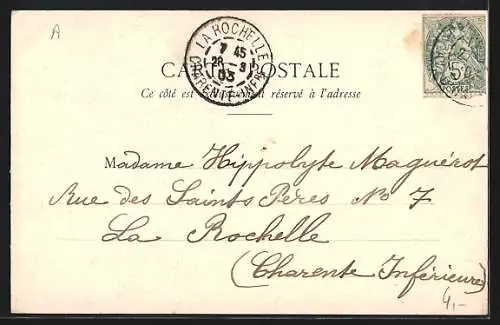 A
LA ROCHELLE
7 45
28 - 3
03
CHARENTE-INFRE
CARTE POSTALE
Ce côté est exclusivement réservé à l'adresse
5c
POSTES
Madame Hippolyte Maguérot
Rue des Saints Pères No 7
La Rochelle
(Charente Inférieure)
4,-